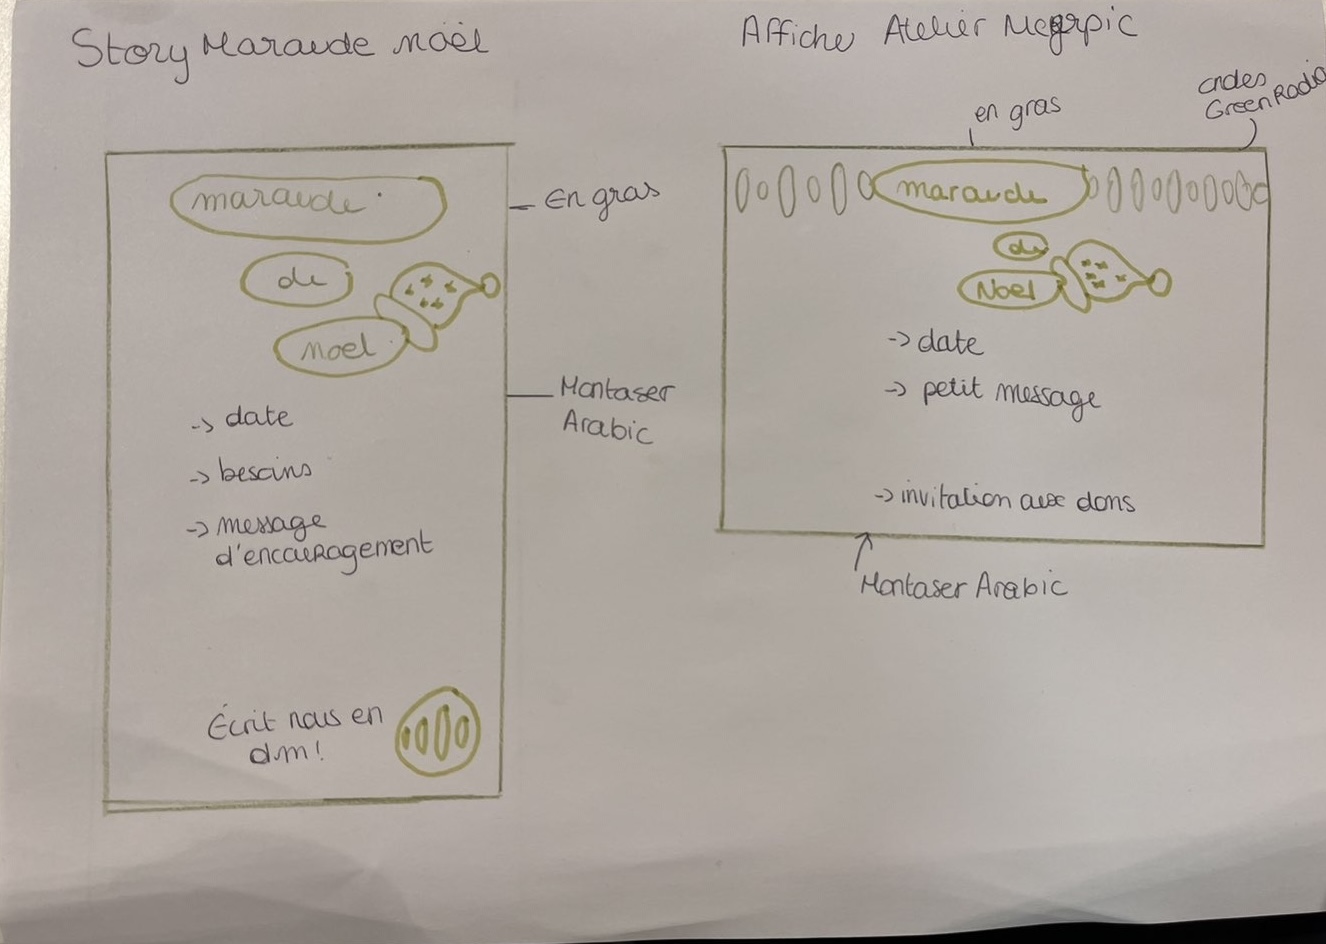 Story Maraude noël
maraude
de
noel
En gras
Montaser
Arabic
-> date
-> besoins
-> message
d'encouragement
Écrit nous en
dm!
Affiche Atelier
en gras
ondes
GreenRadio
maraude
de
Noel
-> date
-> petit message
-> invitation aux dons
Montaser Arabic